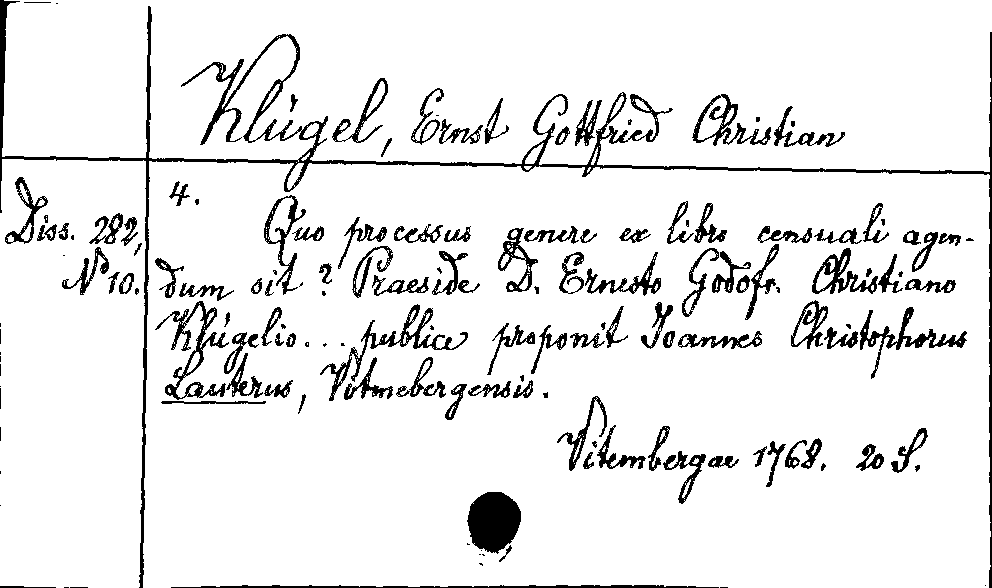 Klügel, Ernst Gottfried Christian
4.
Diss. 282, Quo processus genere ex libro censuali agen-
No 10. dum sit? Praeside D. Ernesto Godofr. Christiano
Klügelio... publice proponit Joannes Christophorus
Lauterus, Vitmebergensis.
Vitembergae 1768. 20 S.